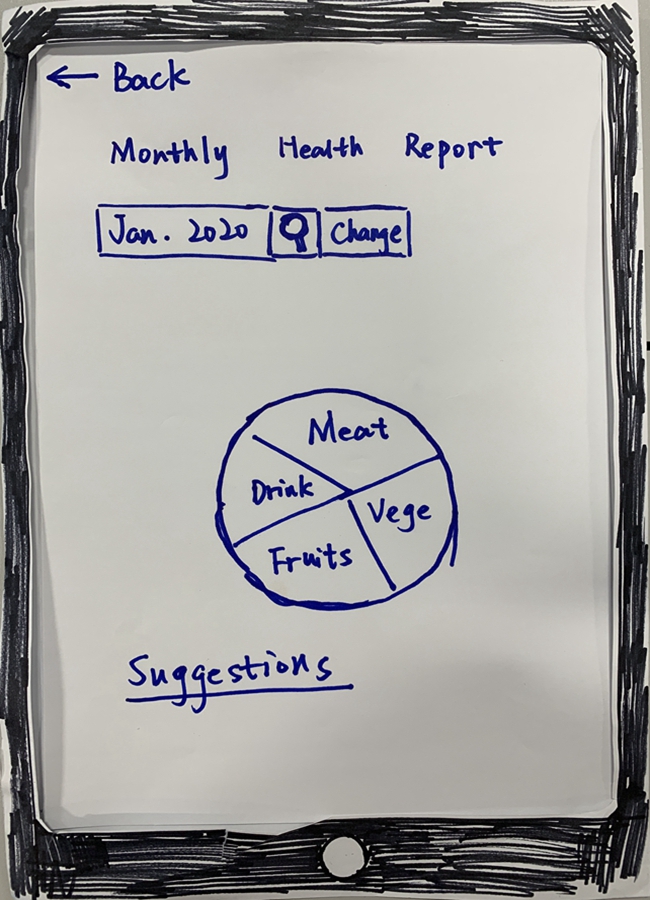 ← Back
Monthly Health Report
Jan. 2020 Change
Meat
Drink
Vege
Fruits
Suggestions